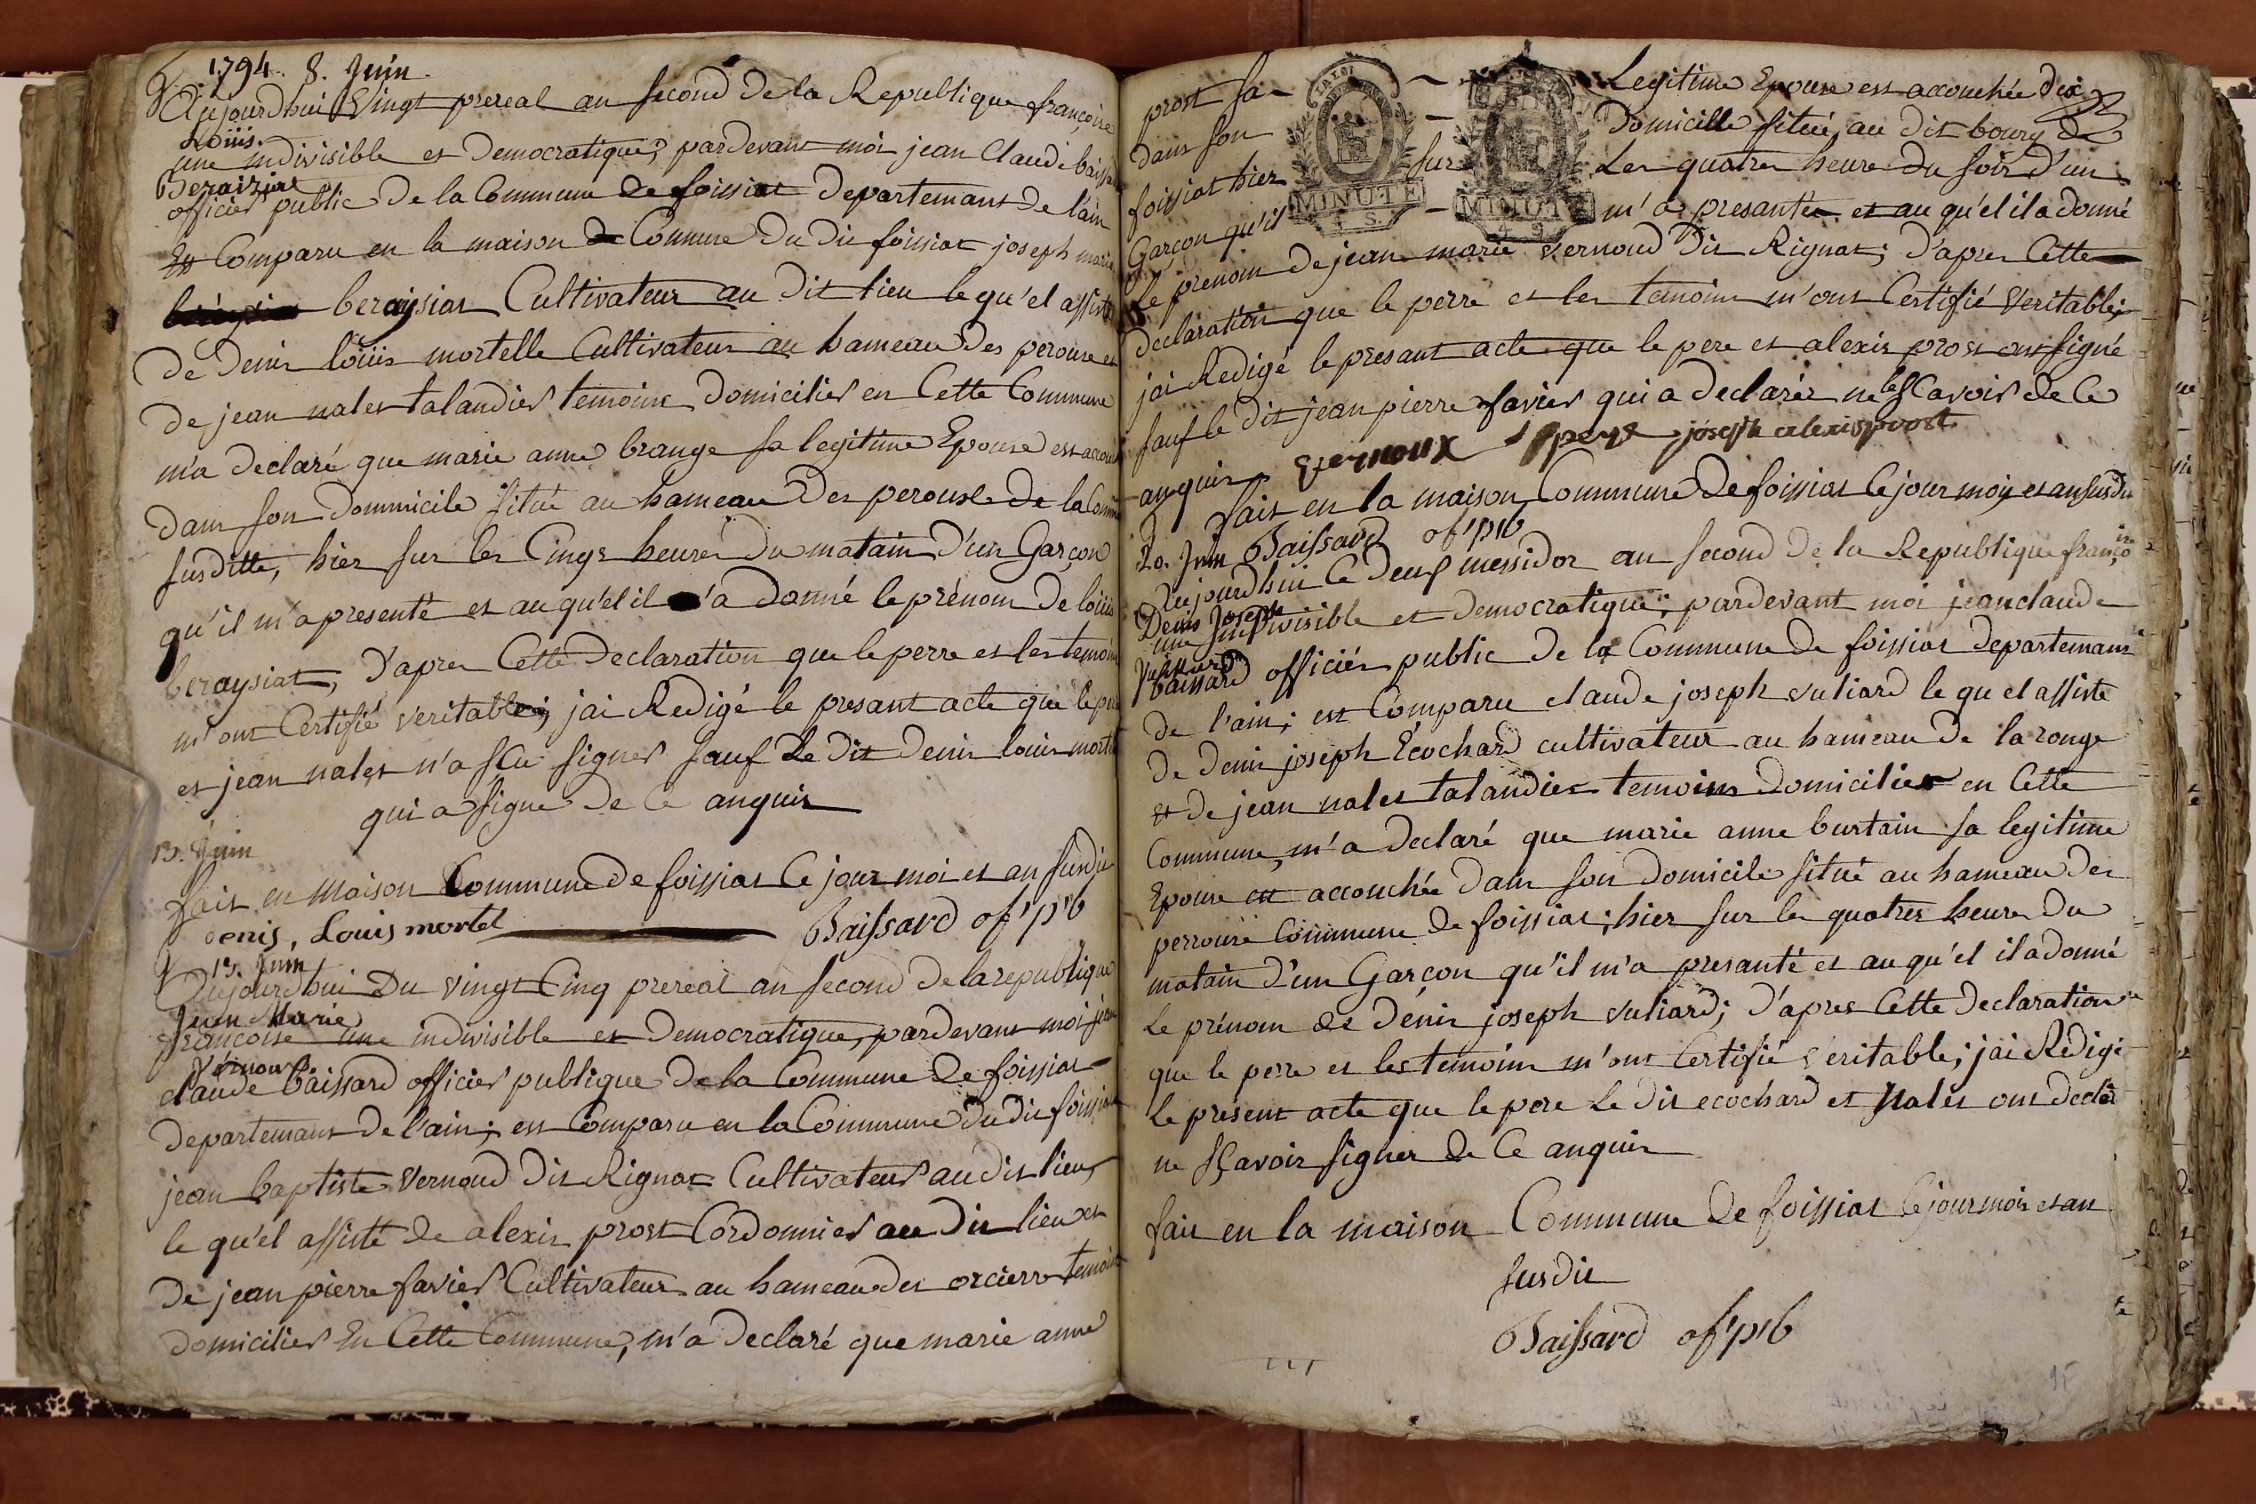 1794. 8. Juin.
Aujourdhui Vingt prereal an second de la Republique françoise
Loüis
une indivisible et Democratique; pardevant moi jean Claude baissa
Beraiziat
officier public de la Commune de foissiat departemant de l'ain
Est Comparu en la maison de Comune du dit foissiat joseph marie
beraysiat Cultivateur au dit lieu le qu'el assisté
de denis loüis mortelle Cultivateur au hameau des perouse et
de jean nales talandier temoins domiciliés en Cette Commune
m'a declaré que marie anne brange sa legitime Epouse est accou
dans son dommicile situé au hameau des perouse de la Comm
susditte, hier sur les Cinqs heures du matain d'un Garçon
qu'il m'a presenté et au qu'el il a donné le prénom de loüis
beraysiat, d'apres Cette declaration que le perre et les temoins
m'ont Certifié veritable; jai Redigé le presant acte que le per
et jean nales n'a sCu signer sauf Le dit denis louis mortel
qui a signe de Ce anquis
13. Juin
fait en maison Commune de foissiat Ce jour moi et an susdit
denis, Louis mortel Baissard of'p'b
13. Juin
Aujourdhui Du vingt Cinq prereal an second de la republique
Jean Marie
françoise une indivisible et democratique, pardevant moi jean
Vernoux
claude baissard officier publique de la Commune de foissiat
departemant de l'ain; est Comparu en la Commune du dit foissiat
jean baptiste vernoud dit Rignat Cultivateur au dit lieu,
le qu'el assisté de alexis prost Cordonnier au dit lieu et
de jean pierre favier Cultivateur au hameau des orcierre temoins
domiciliés En Cette Commune, m'a declaré que marie anne
prost sa - Legitime Epouse est accouchée
dans son domicille situé au dit bourg de
foissiat hier sur Les quatres heure du soir d'un
Garçon qu'il m'a presanter et au qu'el il a donné
LA LOI
MINUTE
4 S.
MINUTE
Le prenom de jean marie vernoud dit Rignat; d'apres Cette
declaration que le perre et les temoins m'ont Certifié veritable;
jai Redigé le presant acte que le pere et alexis prost ont signé
sauf le dit jean pierre favier qui a declarér ne le sCavoir de Ce
anquis vernoux joseph alexis prost
fait en la maison Commune de foissiat Ce jour moy et an susdit
20. Juin Baissard of'p'b
Aujourdhui Ce deux messidor an second de la Republique françoise
Denis Joseph
une indivisible et democratique; pardevant moi jean claude
baissard officiér public de la Commune de foissiat departemant
de l'ain; est Comparu claude joseph vuliard le qu el assisté
de denis joseph Ecochard cultivateur au hameau de la ronge
et de jean nales talandier temoins domiciliés en Cette
Commune, m'a declaré que marie anne burtain sa legitime
Epouse est accouchée dans son domicile situé au hameau des
perrouse Commune de foissiat; hier sur les quatres heures du
matain d'un Garçon qu'il m'a presanté et au qu'el il a donné
Le prénom de dénis joseph vuliard; d'apres Cette declaration
que le perre et les temoins m'ont Certifié veritable; jai Redigé
Le présent acte que le pere Le dit ecochard et Nales ont declar
ne sçavoir signer de Ce anquis
fait en la maison Commune de foissiat Ce jour mois et an
susdit
Baissard of'p'b